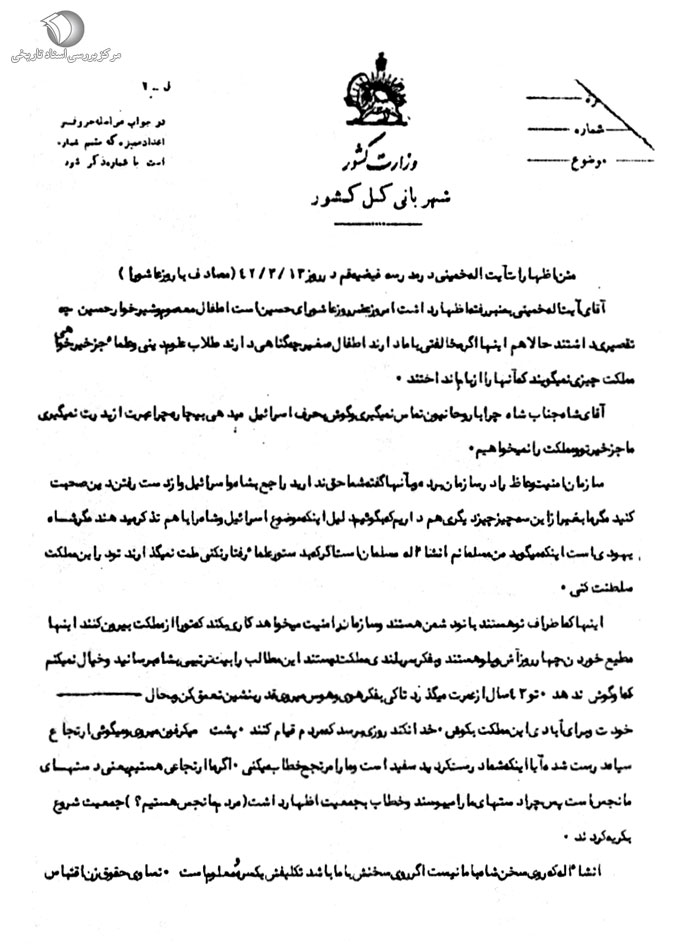 مرکز بررسی اسناد تاریخی
در جواب مراسله حروف و
اعداد ممیزه که منضم شماره
است با شماره ذکر شود
شماره
موضوع
وزارت کشور
شهربانی کل کشور
متن اظهارات آیت اله خمینی در مدرسه فیضیه قم در روز ۴۲/۳/۱۳ (مصادف با روز عاشورا)
آقای آیت اله خمینی بمنبر رفته اظهار داشت امروز عصر روز عاشورای حسین است اطفال معصوم و شیرخوار حسین چه
تقصیری داشتند حالا هم اینها اگر مخالفتی با ما دارند اطفال صغیر چه گناهی دارند طلاب علوم دینی و علماء جز خیرخواهی
مملکت چیزی نمیگویند که آنها را از بام انداختند ۰
آقای شاه جناب شاه چرا با روحانیون تماس نمیگیری و گوش بحرف اسرائیل میدهی بیچاره چرا عبرت از پدرت نمیگیری
ما جز خیر تو و مملکت را نمیخواهیم ۰
سازمان امنیت وعاظ را در سازمان برده و بآنها گفته شما حق ندارید راجع بشاه و اسرائیل و از دست رفتن دین صحبت
کنید مگر ما بغیر از این سه چیز چیز دیگری هم داریم که بگوئیم دلیل اینکه موضوع اسرائیل و شاه را با هم تذکر میدهند مگر شاه
یهودی است اینکه میگوید من مسلمانم انشاءاله مسلمان است اگر که بدستور علماء رفتار نکنی ملت نمیگذارند تو در این مملکت
سلطنت کنی ۰
اینها که اطراف تو هستند با تو دشمن هستند و سازمان امنیت میخواهد کاری بکند که تو را از مملکت بیرون کنند اینها
مطیع خوردن چهار روز آش و پلو هستند و بفکر سربلندی مملکت نیستند این مطالب را بهر ترتیبی بشاه برسانید و خیال نمیکنم
که او گوش ندهد ۰ تو ۴۳ سال از عمرت میگذرد تا کی بفکر هوی و هوس میروی قدری بنشین تعمق کن و بحال
خودت و برای آبادی این مملکت بکوش ۰ خدا نکند روزی برسد که مردم قیام کنند ۰ پشت میکرفون میروی و میگوئی ارتجاع
سیاه درست شده آیا اینکه شما درست کردید سفید است و ما را مرتجع خطاب میکنی ۰ اگر ما ارتجاعی هستیم یعنی دستهای
ما نجس است پس چرا دستهای ما را میبوسند و خطاب بجمعیت اظهار داشت (مردم ما نجس هستیم ؟) جمعیت شروع
بگریه کردند ۰
انشاءاله که روی سخن شاه با ما نیست اگر روی سخنش با ما باشد تکلیفش یکسره و معلوم است ۰ تساوی حقوق زن اقتباس